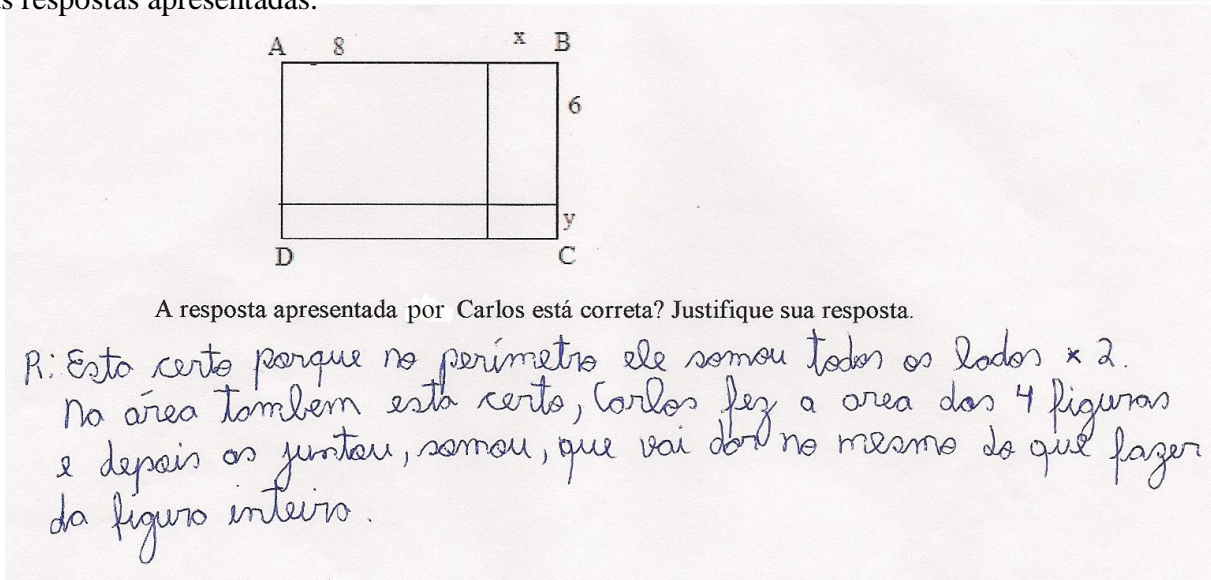 s respostas apresentadas.
A 8 x B
6
y
D C
A resposta apresentada por Carlos está correta? Justifique sua resposta.
R: Esta certo porque no perímetro ele somou todos os lados x 2.
Na área tambem está certo, Carlos fez a area das 4 figuras
e depois as juntou, somou, que vai dar no mesmo do que fazer
da figura inteira.